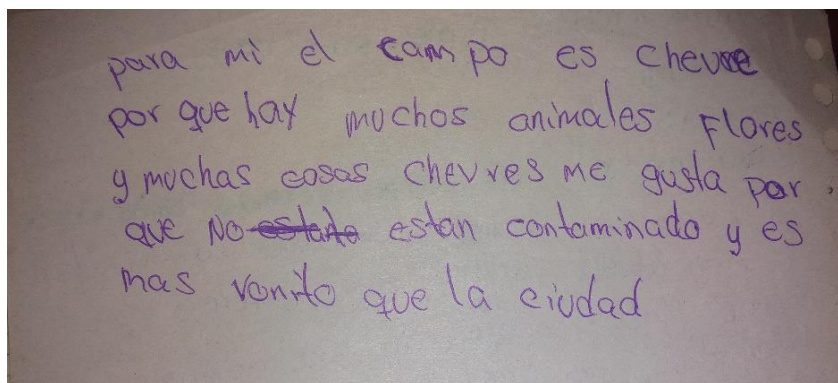 para mi el campo es chevre
por que hay muchos animales Flores
y muchas cosas chevres me gusta por
que No estan contaminado y es
mas vonito que la ciudad